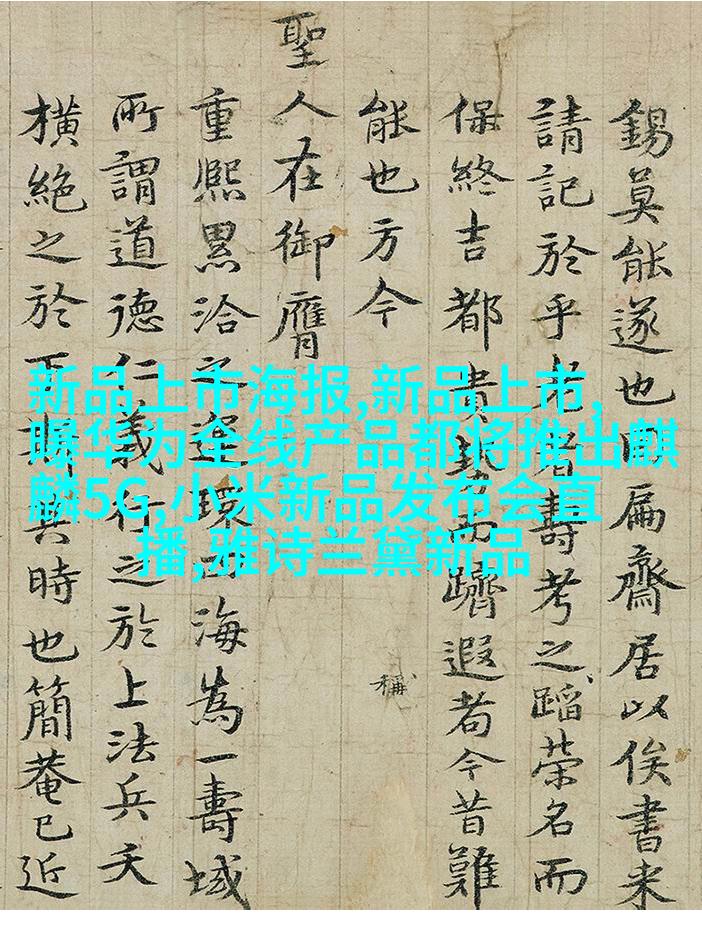 錫莫能遂也扁齋居以俟書来
請記於乎老者壽考之蹈榮名而
保終吉都貴勢而躋遐耇今昔難
能也方今
稱
聖人在御膺
重熙累洽之運環四海為一壽域
所謂道德仁義行之於上法兵夭
橫絕之於下斯其時也簡菴已近
新品上市海报,新品上市,
曝华为全线产品都将推出麒
麟5G,小米新品发布会直
播,雅诗兰黛新品